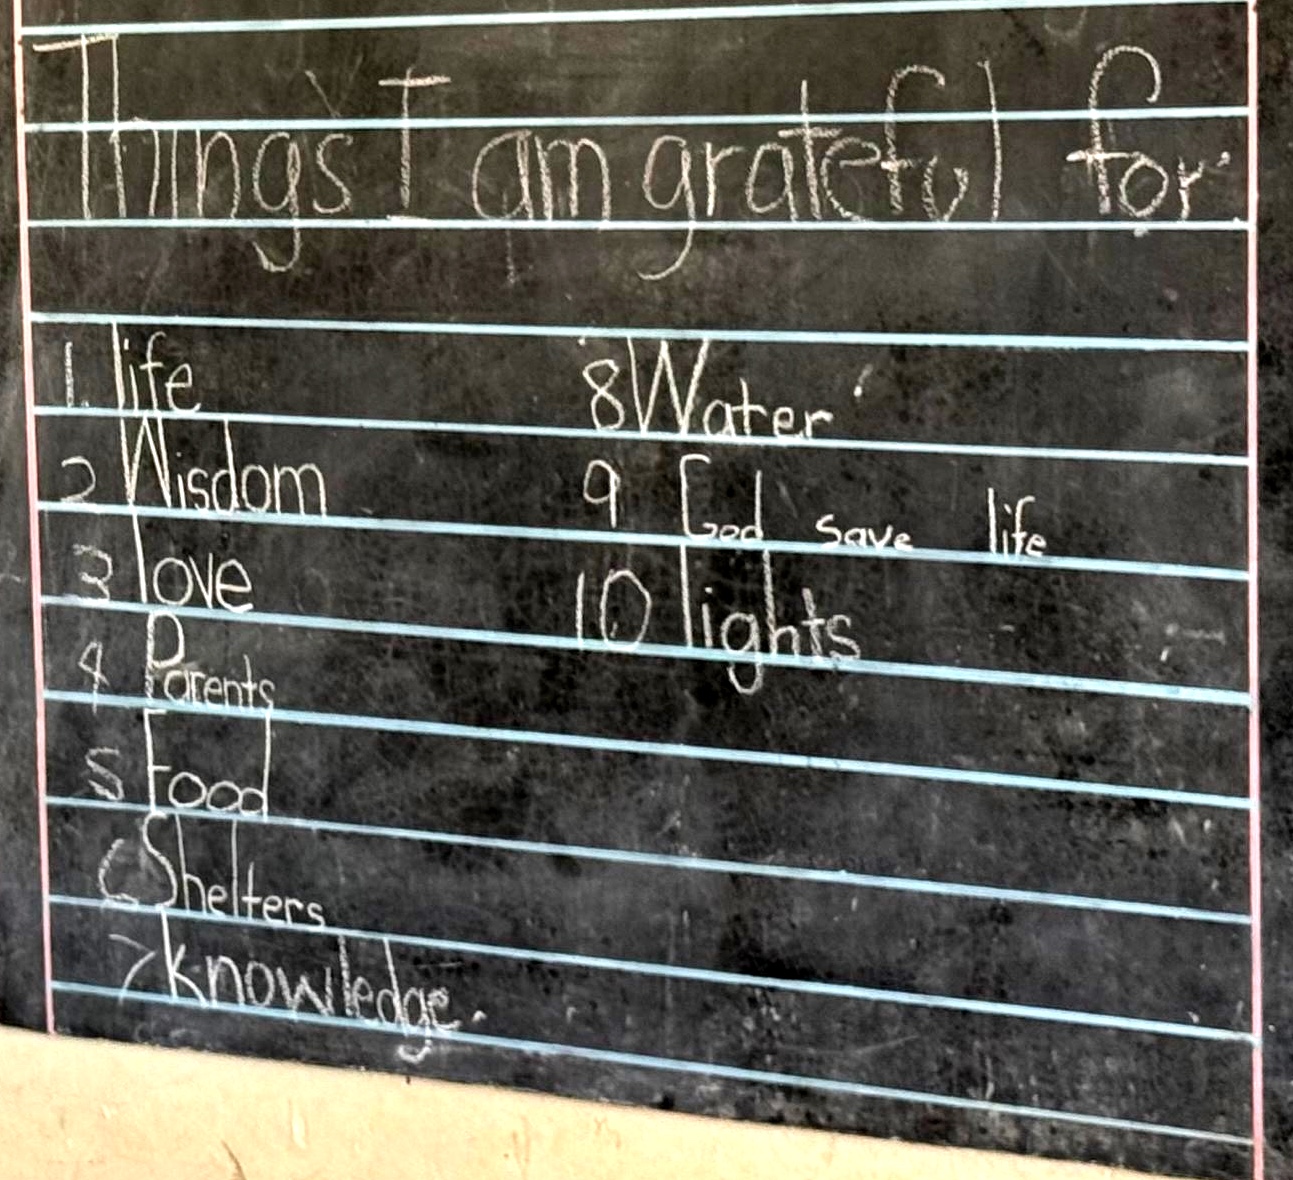 Things I am grateful for
1. life
2 Wisdom
3 love
4 Parents
5 Food
6 Shelters
7 knowledge.
8 Water
9 God save life
10 lights